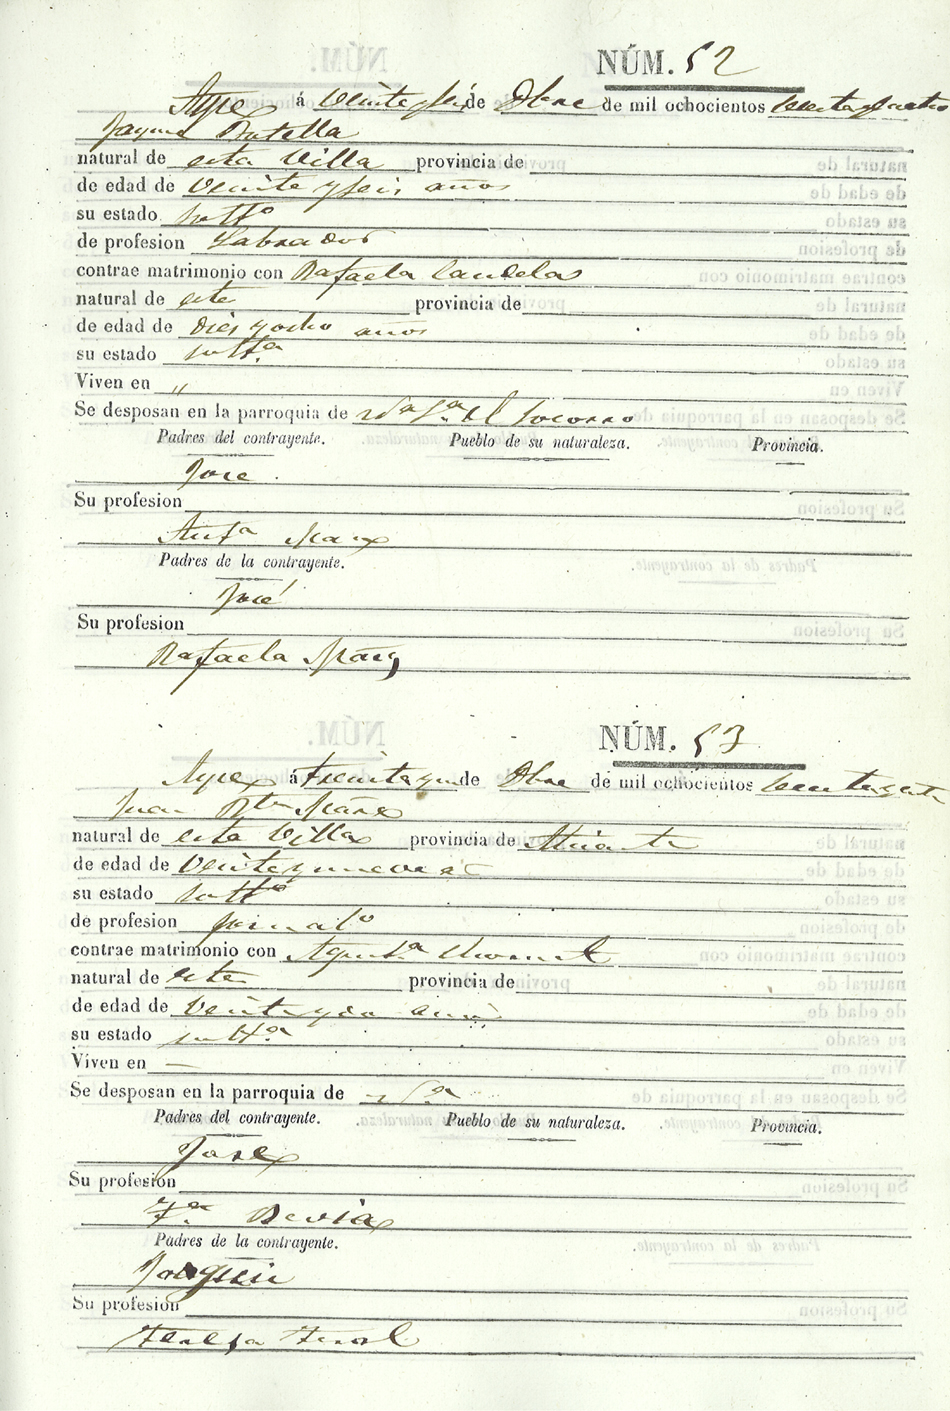 NÚM. 52
Aspe á veinte y seis de Dbre de mil ochocientos sesenta y cuatro
Jayme Botella
natural de esta Villa provincia de
de edad de veinte y seis años
su estado solt.º
de profesion Labrador
contrae matrimonio con Rafaela Candela
natural de esta provincia de
de edad de dies y ocho años
su estado solt.ª
Viven en "
Se desposan en la parroquia de El Socorro
Padres del contrayente. Pueblo de su naturaleza. Provincia.
Jose
Su profesion
Padres de la contrayente.
José
Su profesion
Rafaela
NÚM. 53
Aspe á treinta y un de Dbre de mil ochocientos sesenta y
Juan
natural de esta Villa provincia de Alicante
de edad de veinte y nueve a
su estado solt.º
de profesion jornal.º
contrae matrimonio con
natural de esta provincia de
de edad de veinte y dos
su estado solt.ª
Viven en —
Se desposan en la parroquia de
Padres del contrayente. Pueblo de su naturaleza. Provincia.
Jose
Su profesion
Padres de la contrayente.
Joaquin
Su profesion
Teresa